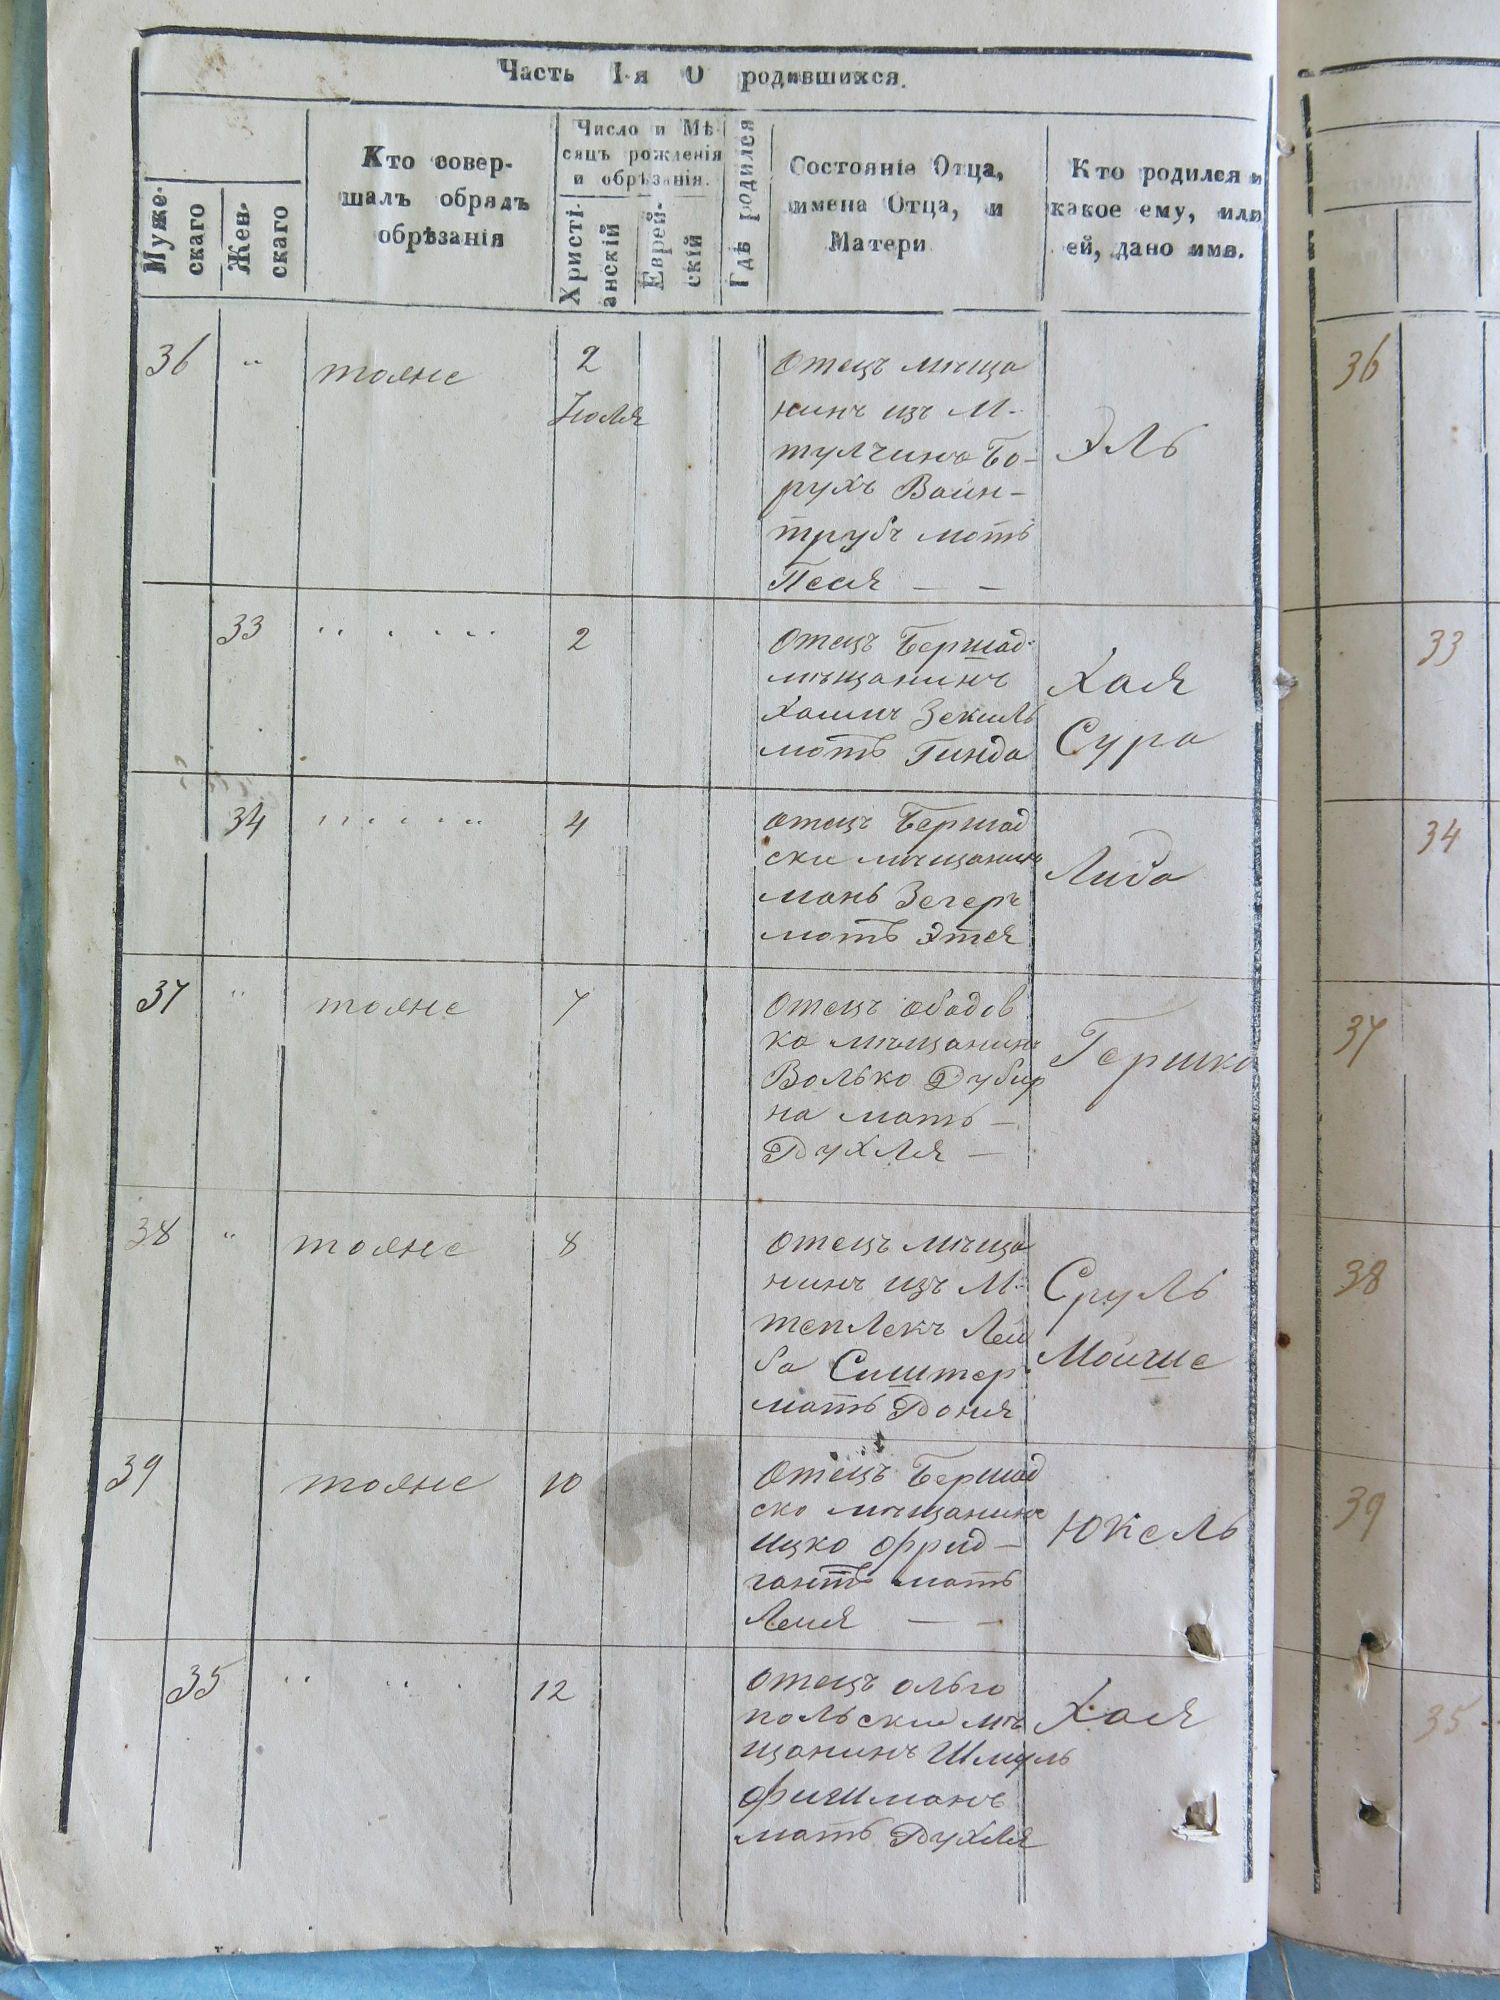 Часть I-я О родившихся.
Мужескаго
Женскаго
Кто совершалъ обрядъ обрѣзанія
Число и Мѣсяцъ рожденія и обрѣзанія.
Христіанскій
Еврейскій
Гдѣ родился
Состояніе Отца, имена Отца, и Матери
Кто родился и какое ему, или ей, дано имя.
36 " тояже 2 Июля
Отецъ мѣща
нинъ изъ М.
тулчина Бо-
рухъ Вайн-
трубъ мать
Песя — —
Эль
33 2
Отецъ Бершад.
мѣщанинъ
Хаимъ Зекиль
мать Гинда
Хая
Сура
34 4
отецъ Бершад
ски мѣщанинъ
мань Зегеръ
мать Этея
Либа
37 " тояже 7
Отецъ ободов
ка мѣщанинъ
Волько Дубир
на мать —
Рухля —
Гершко
38 " тояже 8
Отецъ мѣща
нинъ изъ М.
теплекъ Лей
ба Сиштер
мать Роня
Сруль
Мойше
39 тояже 10
Отецъ Бершад
ско мѣщанинъ
ицко Фрид—
гантъ мать
Лея — —
Юкель
35 12
Отецъ ольго
польские мѣ
щанинъ Шмуль
Фишманъ
мать Рухля
Хая
36
33
34
37
38
39
35